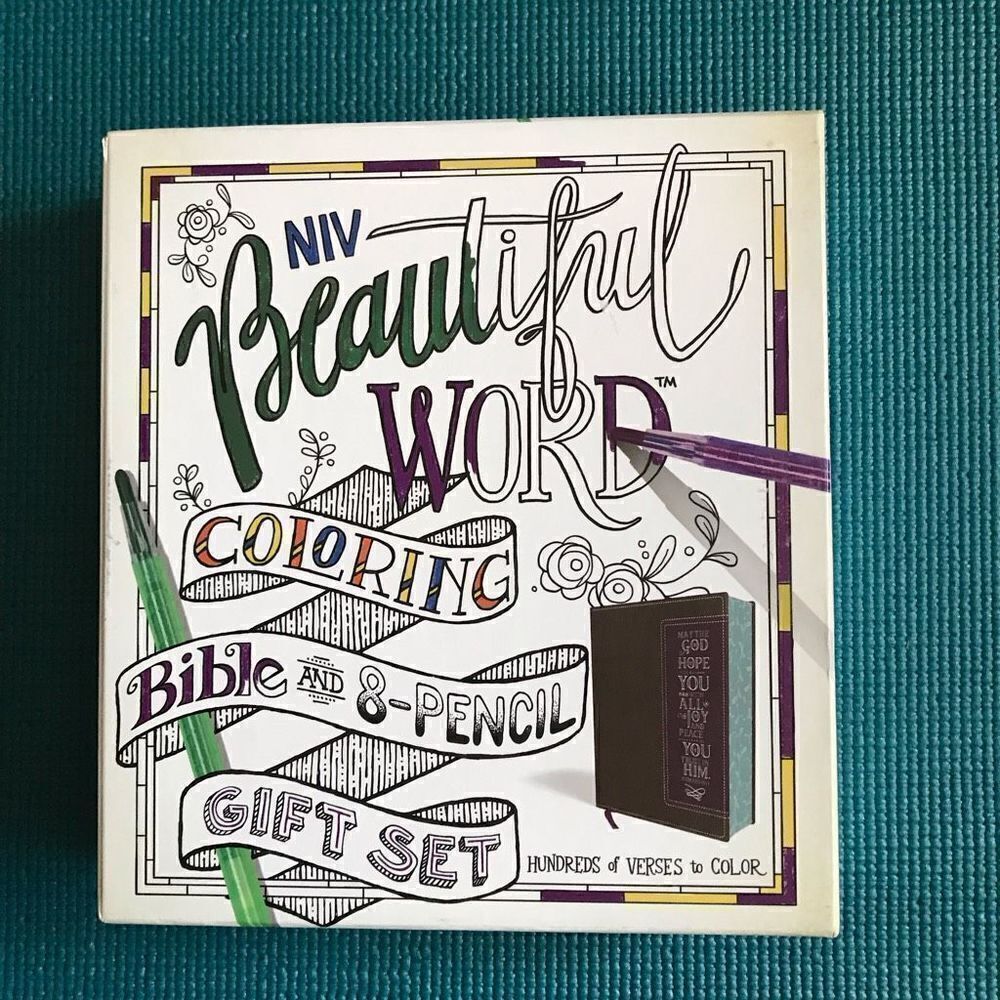 NIV
Beautiful
WORD™
COLORING
Bible AND 8-PENCIL
GIFT SET
MAY THE
GOD
HOPE
YOU
ALL
JOY
AND
PEACE
YOU
HIM
HUNDREDS of VERSES to COLOR